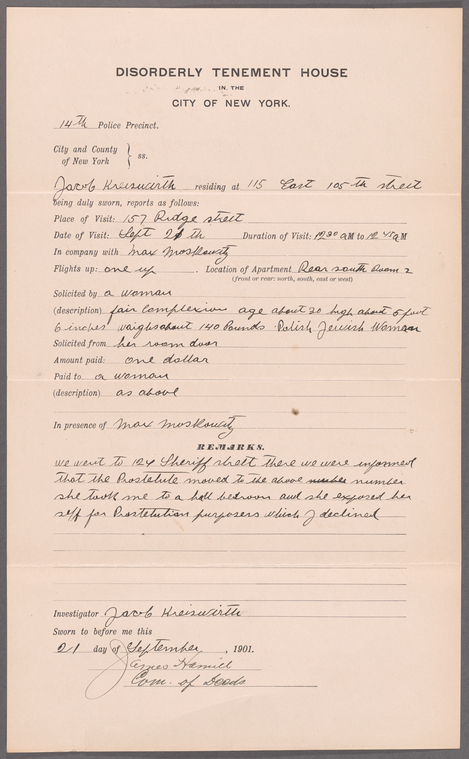 DISORDERLY TENEMENT HOUSE
IN THE
CITY OF NEW YORK.
14th Police Precinct.
City and County
of New York } ss.
Jacob Kreiswirth residing at 115 East 105th street
being duly sworn, reports as follows:
Place of Visit: 157 Ridge street
Date of Visit: Sept 21th Duration of Visit: 12 30 a M to 12 45 a M
In company with Max Moskowitz
Flights up: one up . Location of Apartment Rear south Room 2
(front or rear: north, south, east or west)
Solicited by a woman
(description) fair Complexion age about 30 high about 5 foot
6 inches waighs about 140 Pounds Polish Jewish Woman
Solicited from her room door
Amount paid: one dollar
Paid to a woman
(description) as above
In presence of Max Moskowitz
REMARKS.
we went to 124 Sheriff strett there we were informed
that the Prostetute moved to the above number
she took me to a hall bedroom and she exposed her
self for Prostetution purposers which I declined
Investigator Jacob Kreiswirth
Sworn to before me this
21 day of September , 1901.
James Hamill
Com. of Deeds